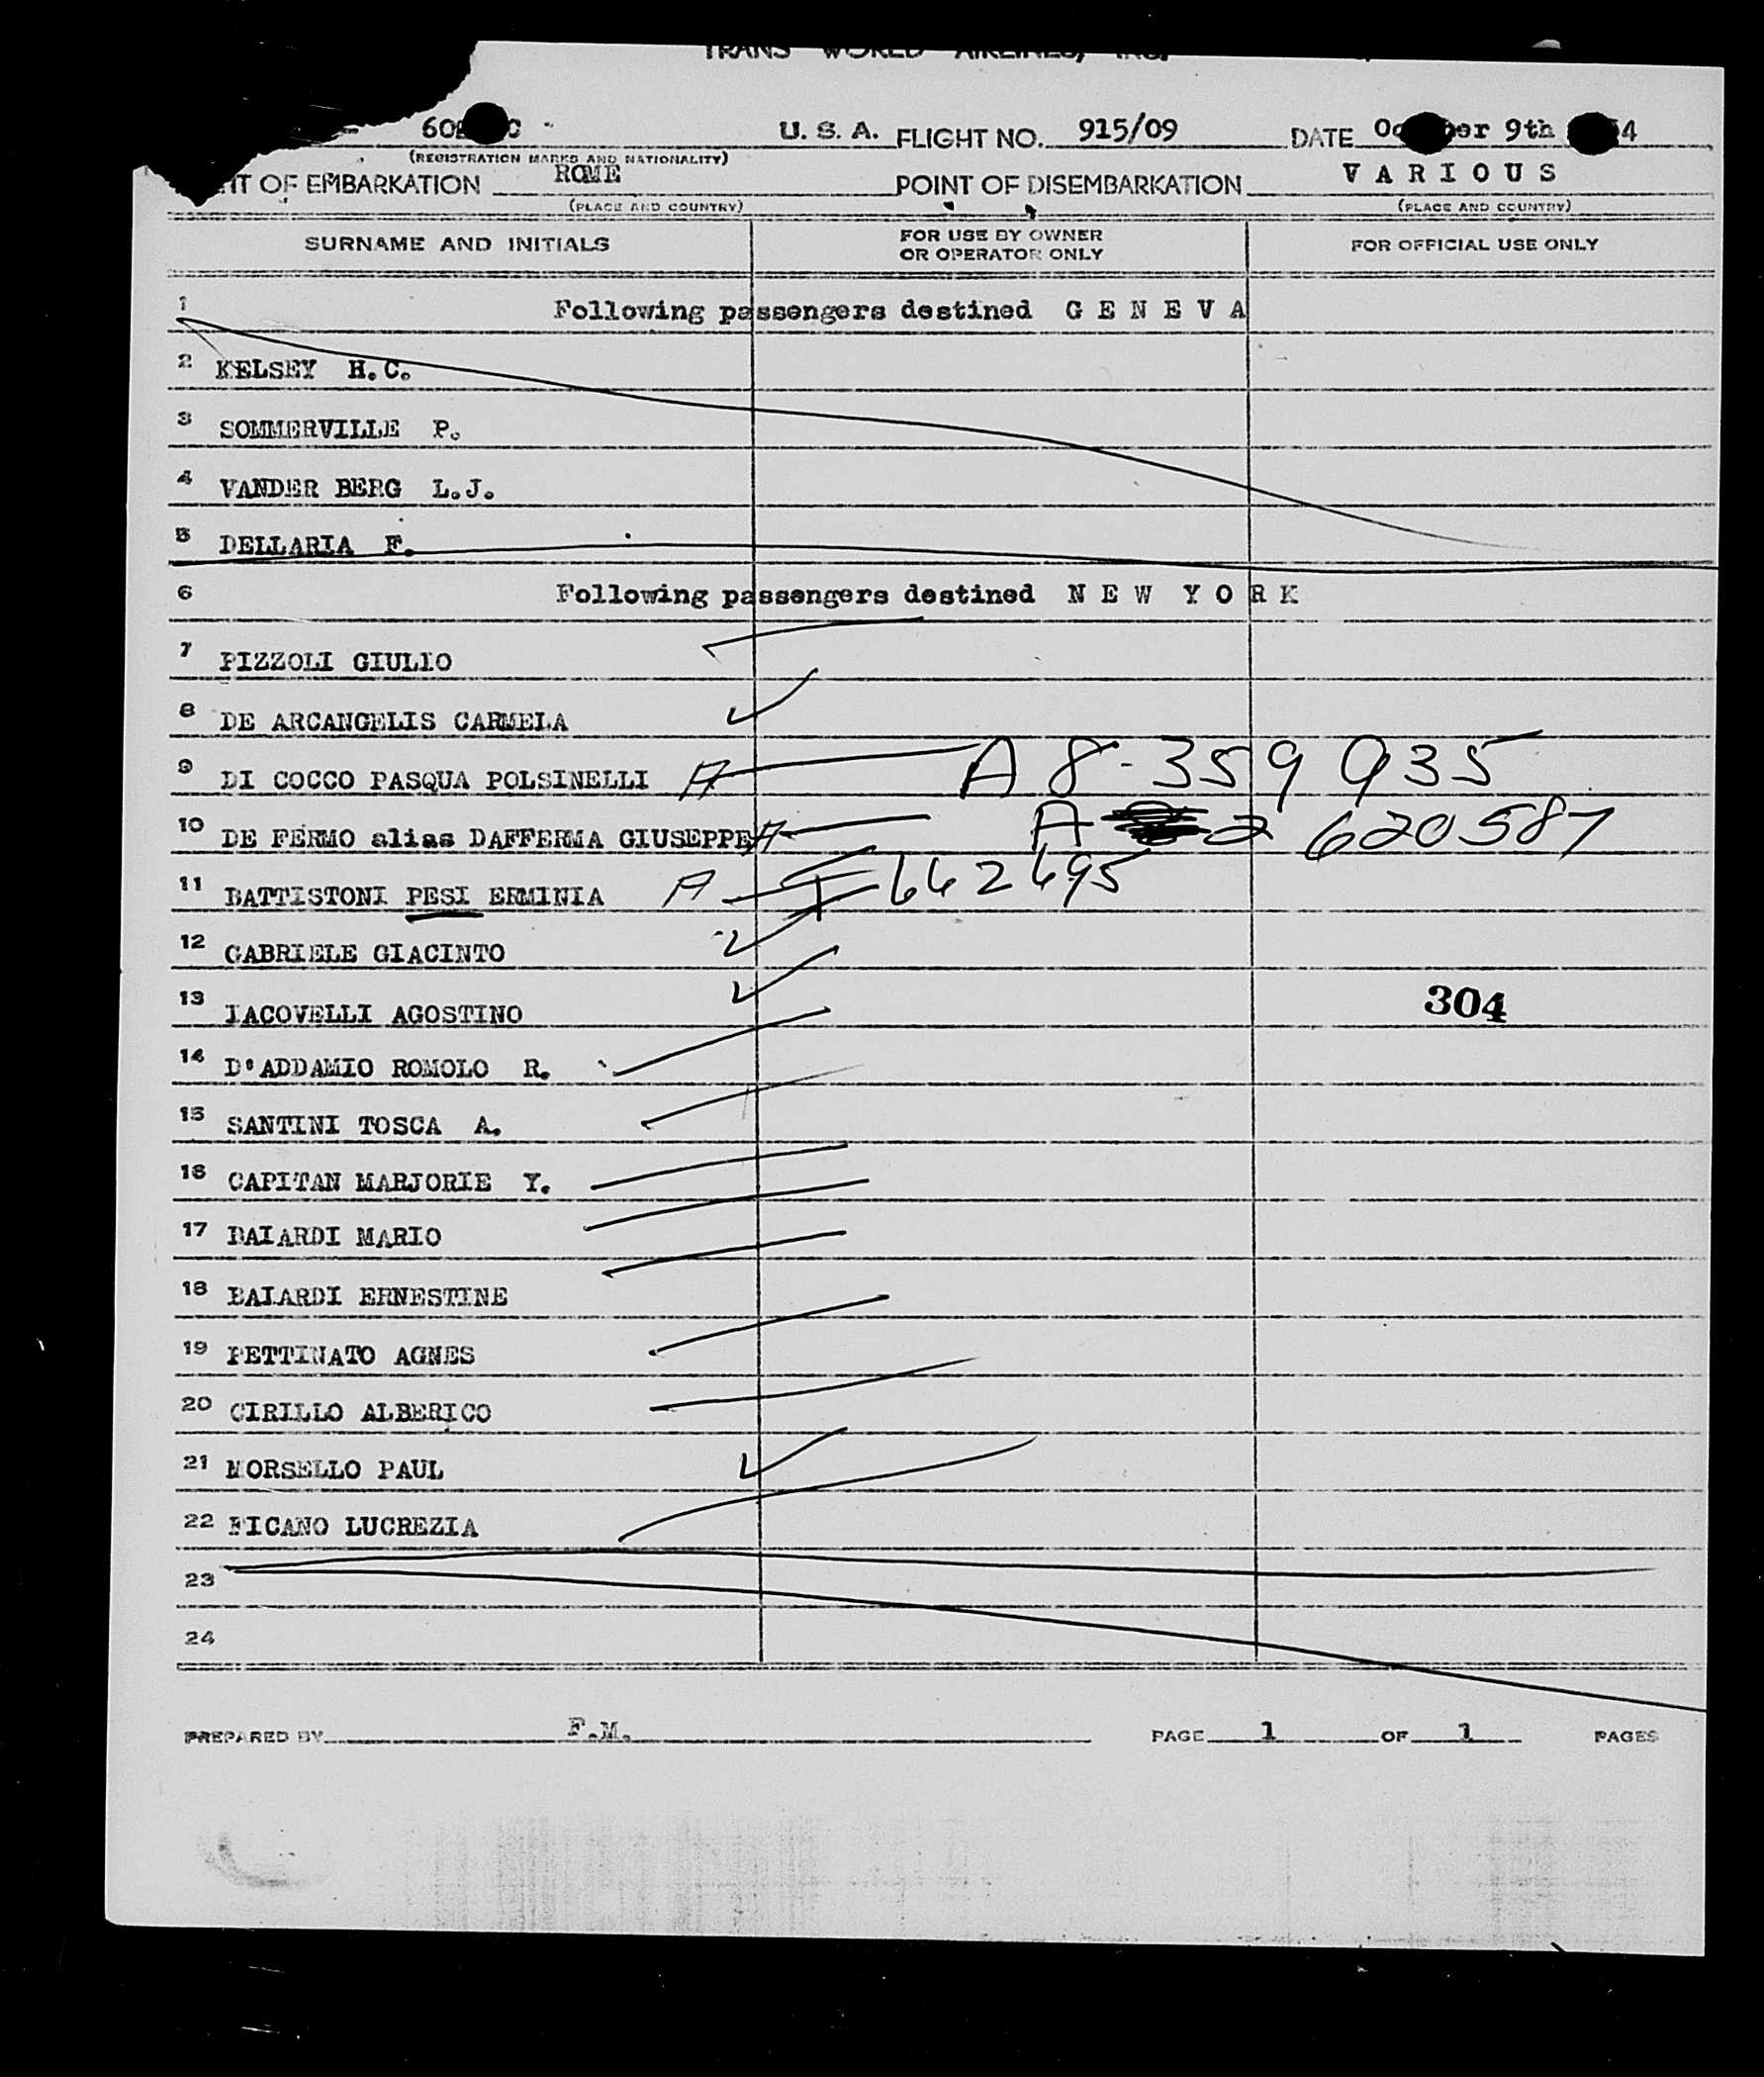 TRANS WORLD AIRLINES, INC.
U. S. A. FLIGHT NO. 915/09 DATE 9th
(REGISTRATION MARKS AND NATIONALITY)
OF EMBARKATION ROME POINT OF DISEMBARKATION V A R I O U S
(PLACE AND COUNTRY) (PLACE AND COUNTRY)
SURNAME AND INITIALS FOR USE BY OWNER OR OPERATOR ONLY FOR OFFICIAL USE ONLY
1 Following passengers destined G E N E V A
2 KELSEY H.C.
3 SOMMERVILLE P.
4 VANDER BERG L.J.
5 DELLARIA F.
6 Following passengers destined N E W Y O R K
7 PIZZOLI GIULIO
8 DE ARCANGELIS CARMELA
9 DI COCCO PASQUA POLSINELLI A A 8-359 935
10 DE FERMO alias DAFFERMA GIUSEPPE A A 2 620587
11 BATTISTONI PESI ERMINIA A 642695
12 GABRIELE GIACINTO
13 IACOVELLI AGOSTINO 304
14 D'ADDAMIO ROMOLO R.
15 SANTINI TOSCA A.
16 CAPITAN MARJORIE Y.
17 BAIARDI MARIO
18 BAIARDI ERNESTINE
19 PETTINATO AGNES
20 CIRILLO ALBERICO
21 MORSELLO PAUL
22 FICANO LUCREZIA
23
24
PREPARED BY F.M. PAGE 1 OF 1 PAGES